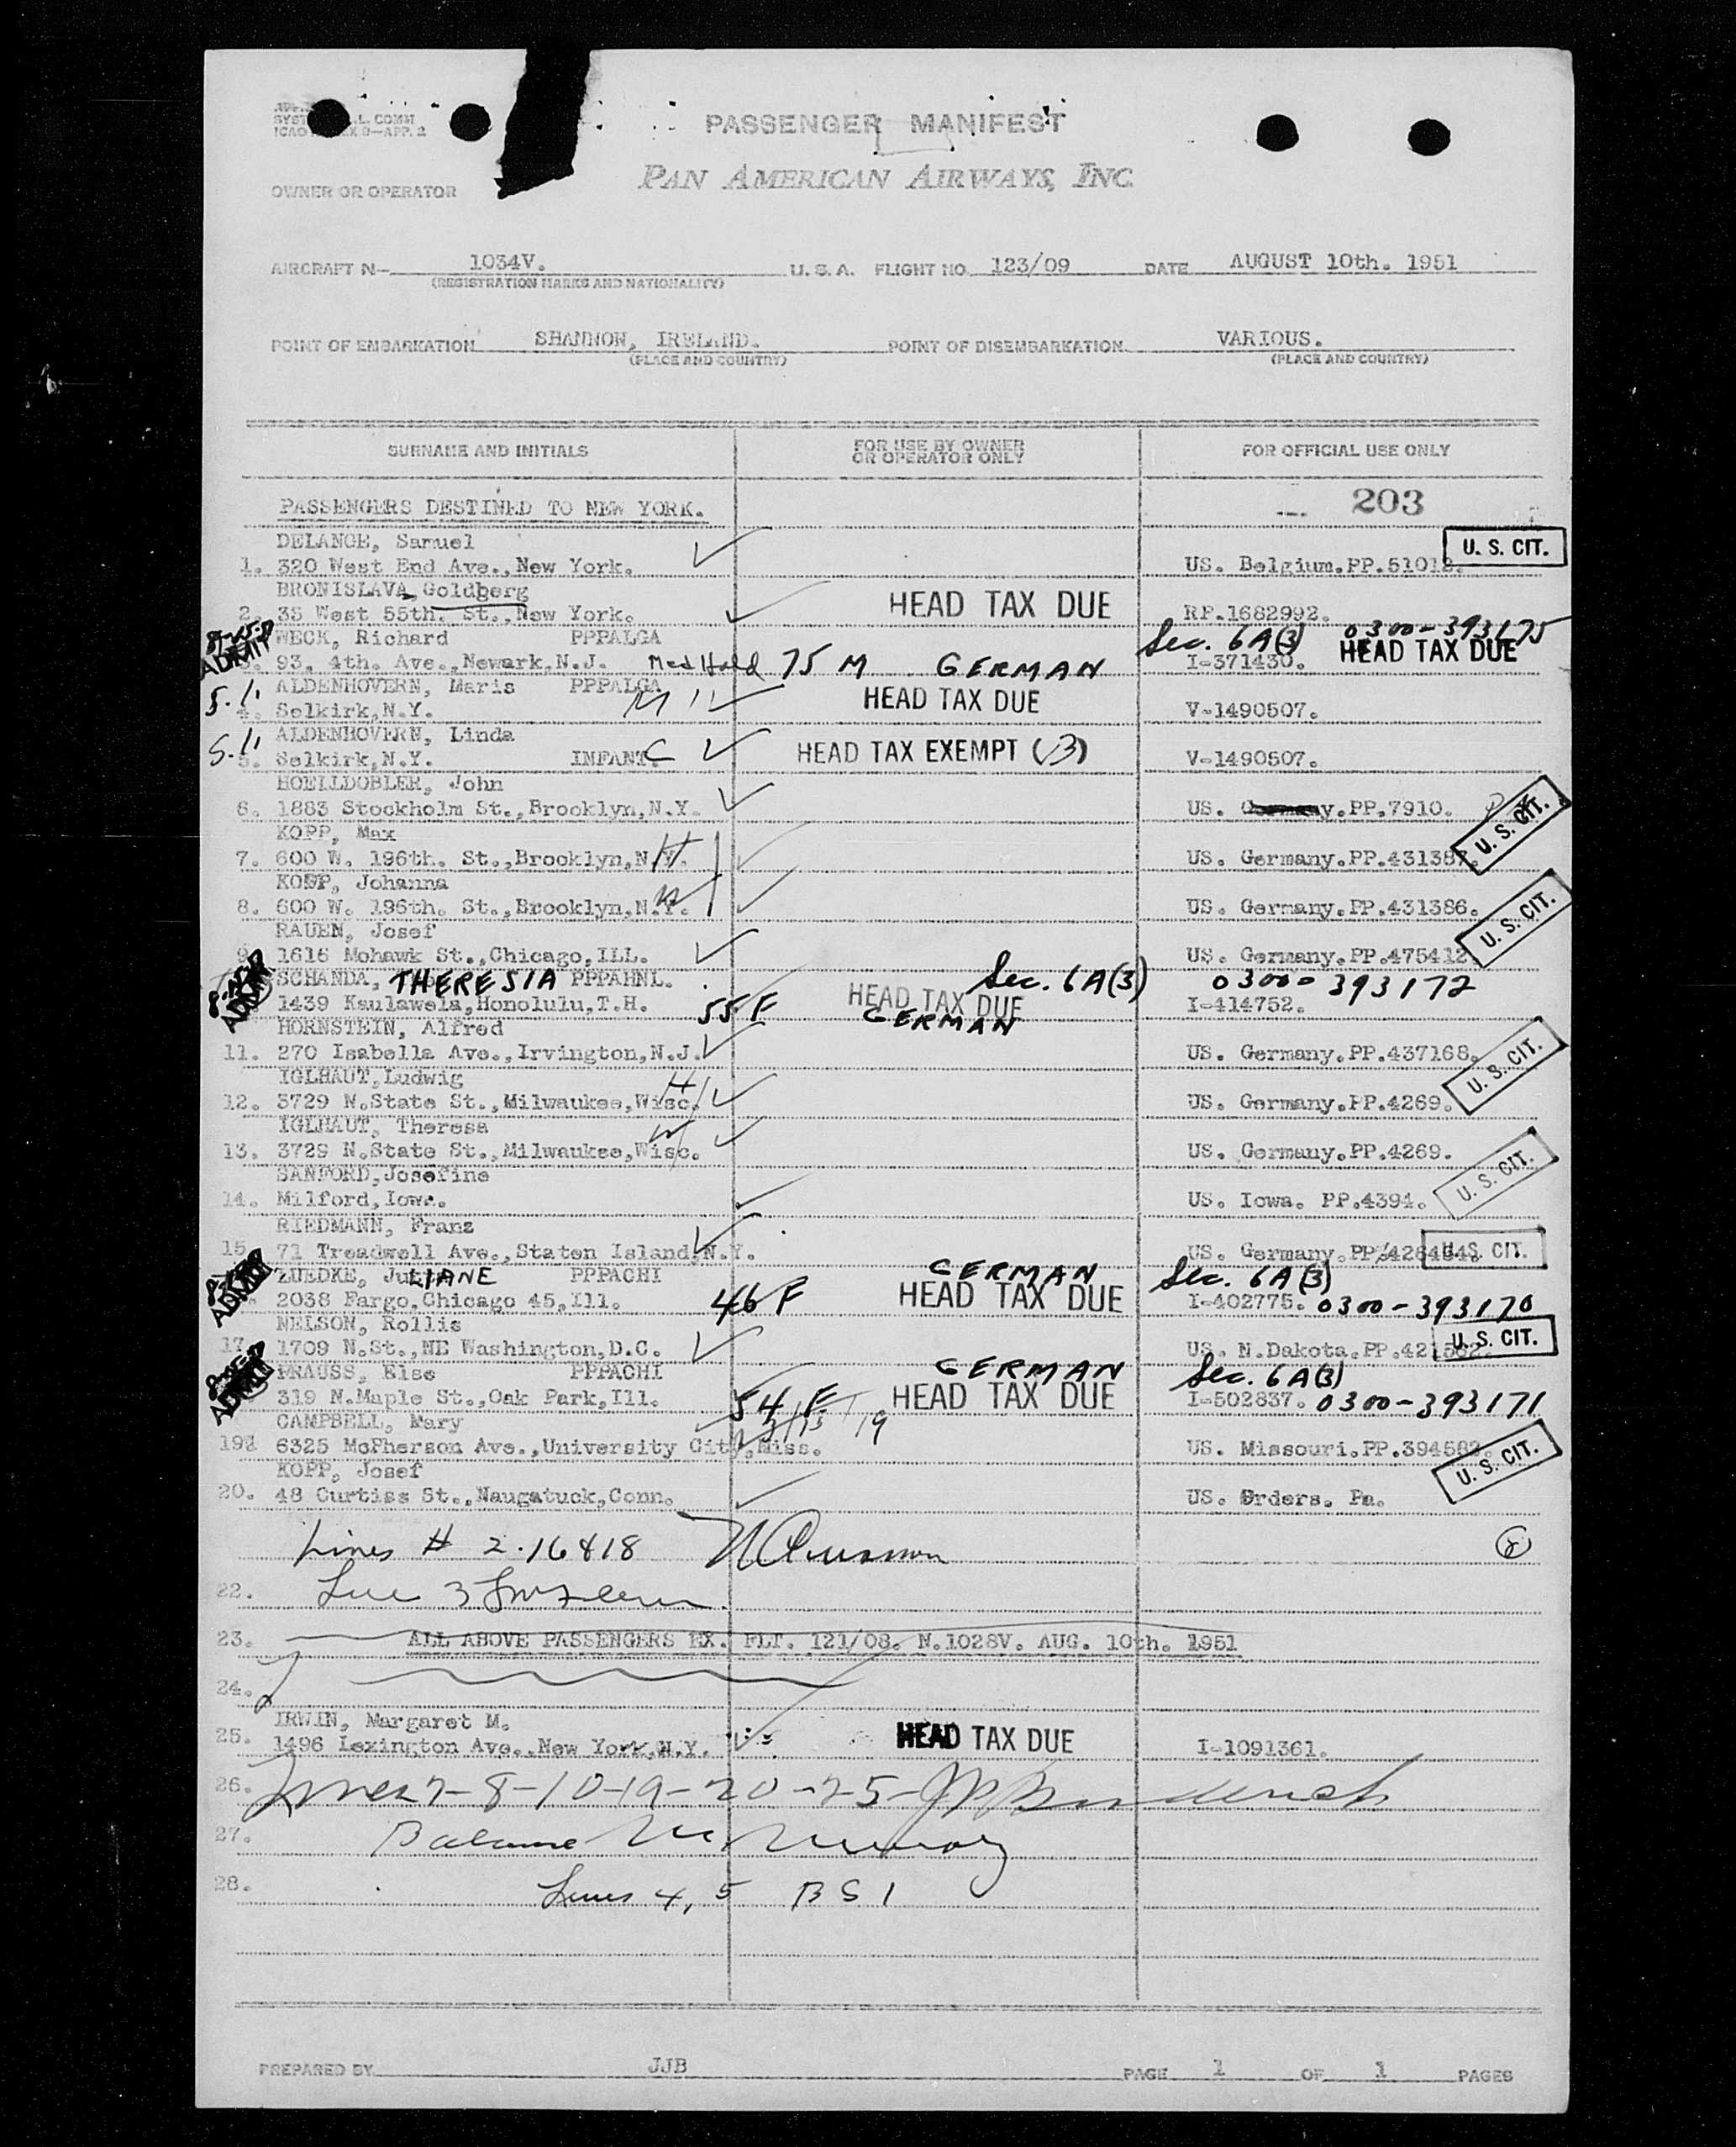 PASSENGER MANIFEST
PAN AMERICAN AIRWAYS, INC.
OWNER OR OPERATOR
AIRCRAFT N- 1034V. U. S. A. FLIGHT NO. 123/09 DATE AUGUST 10th. 1951
(REGISTRATION MARKS AND NATIONALITY)
POINT OF EMBARKATION SHANNON, IRELAND. POINT OF DISEMBARKATION VARIOUS.
(PLACE AND COUNTRY) (PLACE AND COUNTRY)
SURNAME AND INITIALS FOR USE BY OWNER OR OPERATOR ONLY FOR OFFICIAL USE ONLY
PASSENGERS DESTINED TO NEW YORK. 203
DELANGE, Samuel U. S. CIT.
1. 320 West End Ave., New York. US. Belgium.PP.51012.
BRONISLAVA, Goldberg HEAD TAX DUE
2. 35 West 55th. St., New York. RP.1682992.
WECK, Richard PPPALGA Sec. 6A(3) 0300-393175
ADMIT 93, 4th. Ave., Newark, N.J. Med Hold 75 M GERMAN I-371430. HEAD TAX DUE
ALDENHOVERN, Maris PPPALGA HEAD TAX DUE
4. Selkirk, N.Y. V-1490507.
ALDENHOVERN, Linda
5. Selkirk, N.Y. INFANT. C HEAD TAX EXEMPT (3) V-1490507.
HOELLDOBLER, John
6. 1883 Stockholm St., Brooklyn, N.Y. US. Germany.PP.7910. U. S. CIT.
KOPP, Max H
7. 600 W. 196th. St., Brooklyn, N.Y. US. Germany.PP.431387.
KOPP, Johanna W
8. 600 W. 196th. St., Brooklyn, N.Y. US. Germany.PP.431386. U. S. CIT.
RAUEN, Josef
9. 1616 Mohawk St., Chicago, ILL. US. Germany.PP.475412
SCHANDA, THERESIA PPPAHNL. Sec. 6A(3) 0300-393172
ADMIT 1439 Kaulawela, Honolulu, T.H. 55 F HEAD TAX DUE GERMAN I-414752.
HORNSTEIN, Alfred
11. 270 Isabella Ave., Irvington, N.J. US. Germany.PP.437168. U. S. CIT.
IGLHAUT, Ludwig H
12. 3729 N.State St., Milwaukee, Wisc. US. Germany.PP.4269.
IGLHAUT, Theresa W
13. 3729 N.State St., Milwaukee, Wisc. US. Germany.PP.4269.
SANFORD, Josefine
14. Milford, Iowa. US. Iowa. PP.4394. U. S. CIT.
RIEDMANN, Franz
15. 71 Treadwell Ave., Staten Island, N.Y. US. Germany.PP. U. S. CIT.
LUEDKE, LIANE PPPACHI GERMAN Sec. 6A(3)
ADMIT 2038 Fargo, Chicago 45, Ill. 46 F HEAD TAX DUE I-402775. 0300-393170
NELSON, Rollis
17. 1709 N.St., NE Washington, D.C. US. N.Dakota.PP. U. S. CIT.
PRAUSS, Else PPPACHI GERMAN Sec. 6A(3)
ADMIT 319 N.Maple St., Oak Park, Ill. 54 F HEAD TAX DUE I-502837. 0300-393171
CAMPBELL, Mary
19. 6325 McPherson Ave., University City, Miss. US. Missouri.PP.394582. U. S. CIT.
KOPP, Josef
20. 48 Curtiss St., Naugatuck, Conn. US. Orders. Pa.
Lines # 2-16 & 18
22.
23. ALL ABOVE PASSENGERS EX. FLT. 121/08. N.1028V. AUG. 10th. 1951
24.
IRWIN, Margaret M. HEAD TAX DUE
25. 1496 Lexington Ave., New York, N.Y. I-1091361.
26. Lines 7-8-10-19-20-25
27. Balance
28. Lines 4, 5 BSI
PREPARED BY JJB PAGE 1 OF 1 PAGES